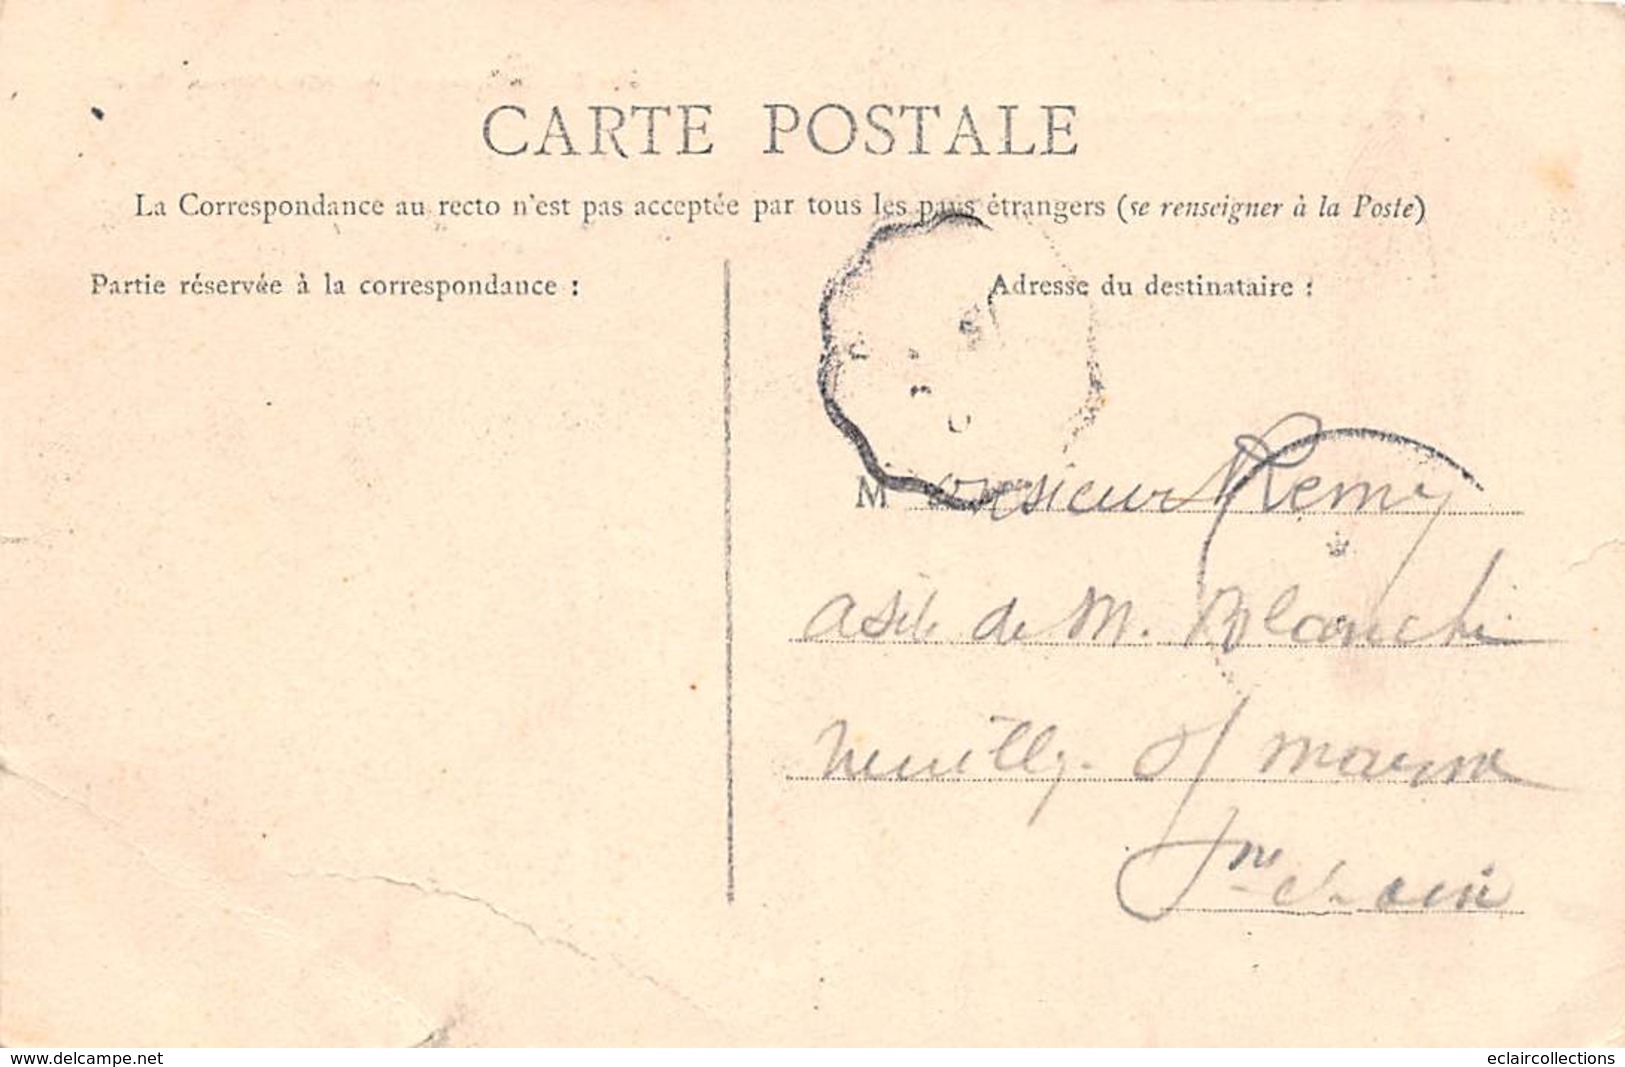 CARTE POSTALE
La Correspondance au recto n'est pas acceptée par tous les pays étrangers (se renseigner à la Poste)
Partie réservée à la correspondance :
Adresse du destinataire :
Monsieur Remy
asile de M. Blanche
Neuilly s/ Marne
Sne et Oise
www.delcampe.net
eclaircollections